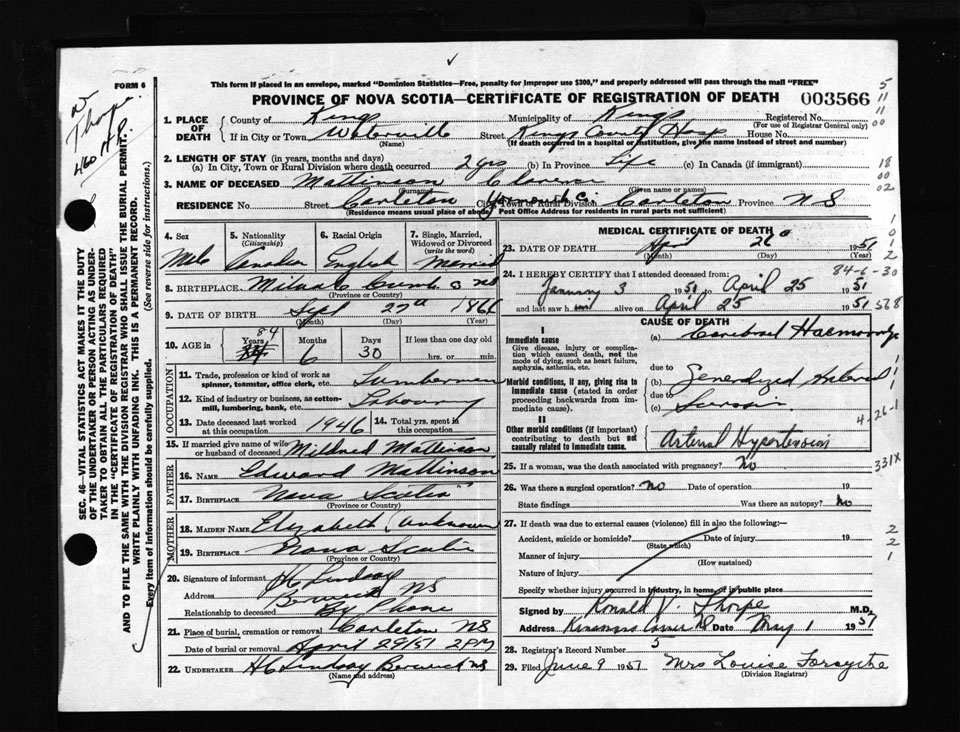 FORM 6
This form if placed in an envelope, marked "Dominion Statistics—Free, penalty for improper use $300," and properly addressed will pass through the mail "FREE"
PROVINCE OF NOVA SCOTIA—CERTIFICATE OF REGISTRATION OF DEATH 003566
1. PLACE OF DEATH
County of Kings Municipality of Kings Registered No.
(For use of Registrar General only)
If in City or Town Waterville Street Kings County Hosp House No.
(Name) (If death occurred in a hospital or institution, give the name instead of street and number)
2. LENGTH OF STAY (in years, months and days)
(a) In City, Town or Rural Division where death occurred 2 yrs (b) In Province Life (c) In Canada (if immigrant)
3. NAME OF DECEASED Mattinson Clarence
(Surname) (Given name or names)
RESIDENCE No. Street Carleton Yarmouth Co. City, Town or Rural Division Carleton Province N S
(Residence means usual place of abode. Post Office Address for residents in rural parts not sufficient)
4. Sex 5. Nationality (Citizenship) 6. Racial Origin 7. Single, Married, Widowed or Divorced (write the word)
Male Canadian English Married
8. BIRTHPLACE
(Province or Country)
9. DATE OF BIRTH Sept 27
(Month) (Day) (Year)
10. AGE in Years Months Days If less than one day old
84 6 30 hrs. or min.
OCCUPATION
11. Trade, profession or kind of work as spinner, teamster, office clerk, etc. Lumberman
12. Kind of industry or business, as cotton-mill, lumbering, bank, etc.
13. Date deceased last worked at this occupation 1946 14. Total yrs. spent in this occupation
15. If married give name of wife or husband of deceased Mildred Mattinson
FATHER
16. NAME Edward Mattinson
17. BIRTHPLACE Nova Scotia
(Province or Country)
MOTHER
18. MAIDEN NAME Elizabeth Unknown
19. BIRTHPLACE Nova Scotia
(Province or Country)
20. Signature of informant H C Lindsay
Address Berwick NS
Relationship to deceased By Phone
21. Place of burial, cremation or removal Carleton NS
Date of burial or removal April 29/51 2 PM
22. UNDERTAKER H C Lindsay Berwick NS
(Name and address)
MEDICAL CERTIFICATE OF DEATH
23. DATE OF DEATH April 26 1951
(Month) (Day) (Year)
84-6-30
24. I HEREBY CERTIFY that I attended deceased from:
January 3 1951 to April 25 1951
and last saw h im alive on April 25 1951
CAUSE OF DEATH
I
Immediate cause
Give disease, injury or complication which caused death, not the mode of dying, such as heart failure, asphyxia, asthenia, etc.
(a) Cerebral Haemorrhage
due to
Morbid conditions, if any, giving rise to immediate cause (stated in order proceeding backwards from immediate cause).
(b) Generalized Arterial
due to
(c)
4-26-1
II
Other morbid conditions (if important) contributing to death but not causally related to immediate cause.
Arterial Hypertension
25. If a woman, was the death associated with pregnancy? No
331X
26. Was there a surgical operation? No Date of operation 19
State findings Was there an autopsy? No
27. If death was due to external causes (violence) fill in also the following:—
Accident, suicide or homicide? Date of injury 19
(State which)
Manner of injury
(How sustained)
Nature of injury
Specify whether injury occurred in industry, in home, or in public place
Signed by Ronald V. Thorpe M.D.
Address Date May 1 1951
28. Registrar's Record Number 5
29. Filed June 9 1951 Mrs Louise Forsythe
(Division Registrar)
SEC. 46—VITAL STATISTICS ACT MAKES IT THE DUTY
OF THE UNDERTAKER OR PERSON ACTING AS UNDERTAKER TO OBTAIN ALL THE PARTICULARS REQUIRED
IN THE "CERTIFICATE OF REGISTRATION OF DEATH"
AND TO FILE THE SAME WITH THE DIVISION REGISTRAR WHO SHALL ISSUE THE BURIAL PERMIT.
WRITE PLAINLY WITH UNFADING INK. THIS IS A PERMANENT RECORD.
Every item of information should be carefully supplied. (See reverse side for instructions.)